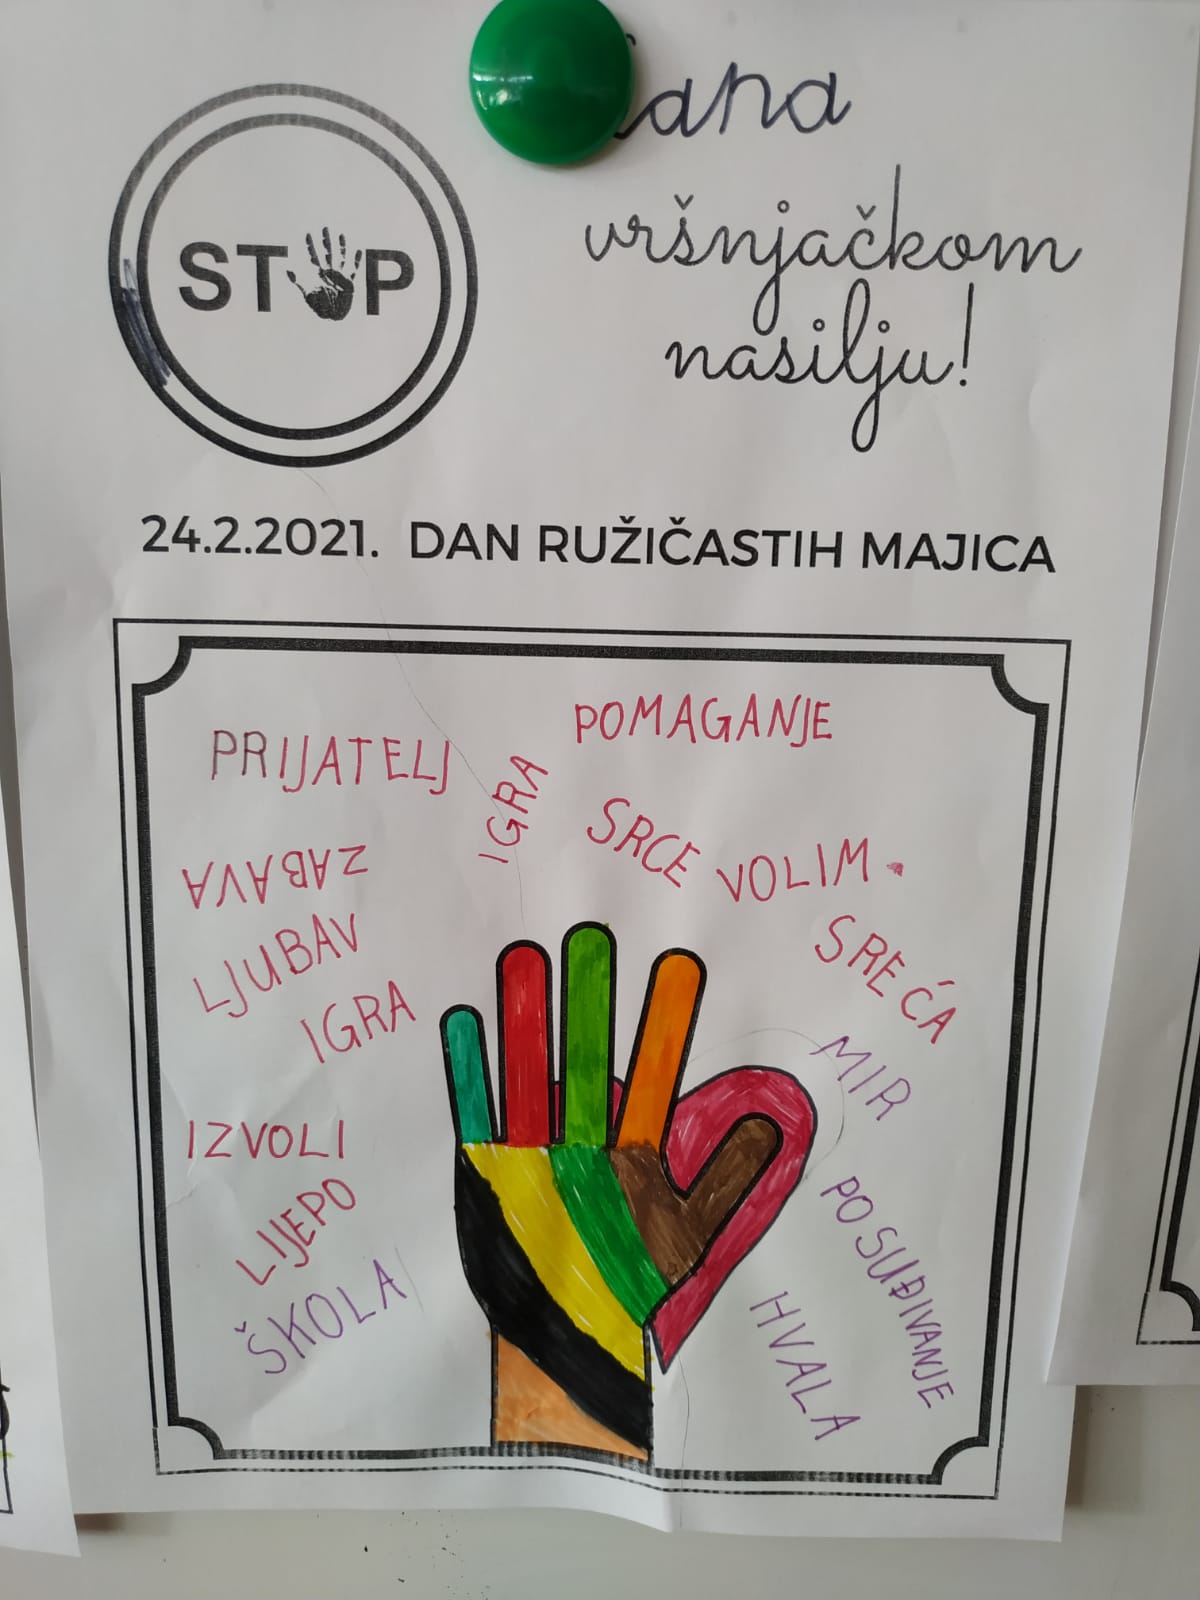 STOP
vršnjačkom
nasilju!
24.2.2021. DAN RUŽIČASTIH MAJICA
PRIJATELJ
IGRA
POMAGANJE
ZABAVA
SRCE
VOLIM.
LJUBAV
SREĆA
IGRA
MIR
IZVOLI
LIJEPO
POSUĐIVANJE
ŠKOLA
HVALA